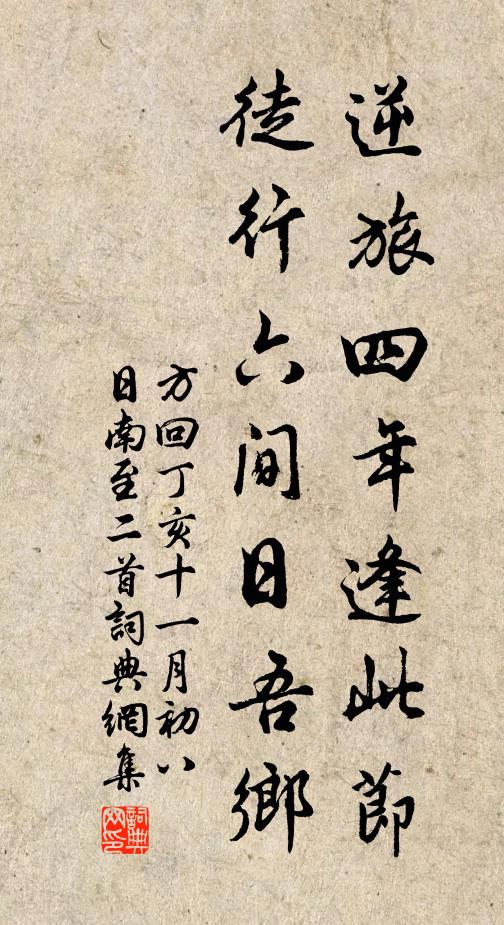 逆旅四年逢此節
徒行六間日吾鄉
方回丁亥十一月初八
日南至二首詞典網集
詞典網印